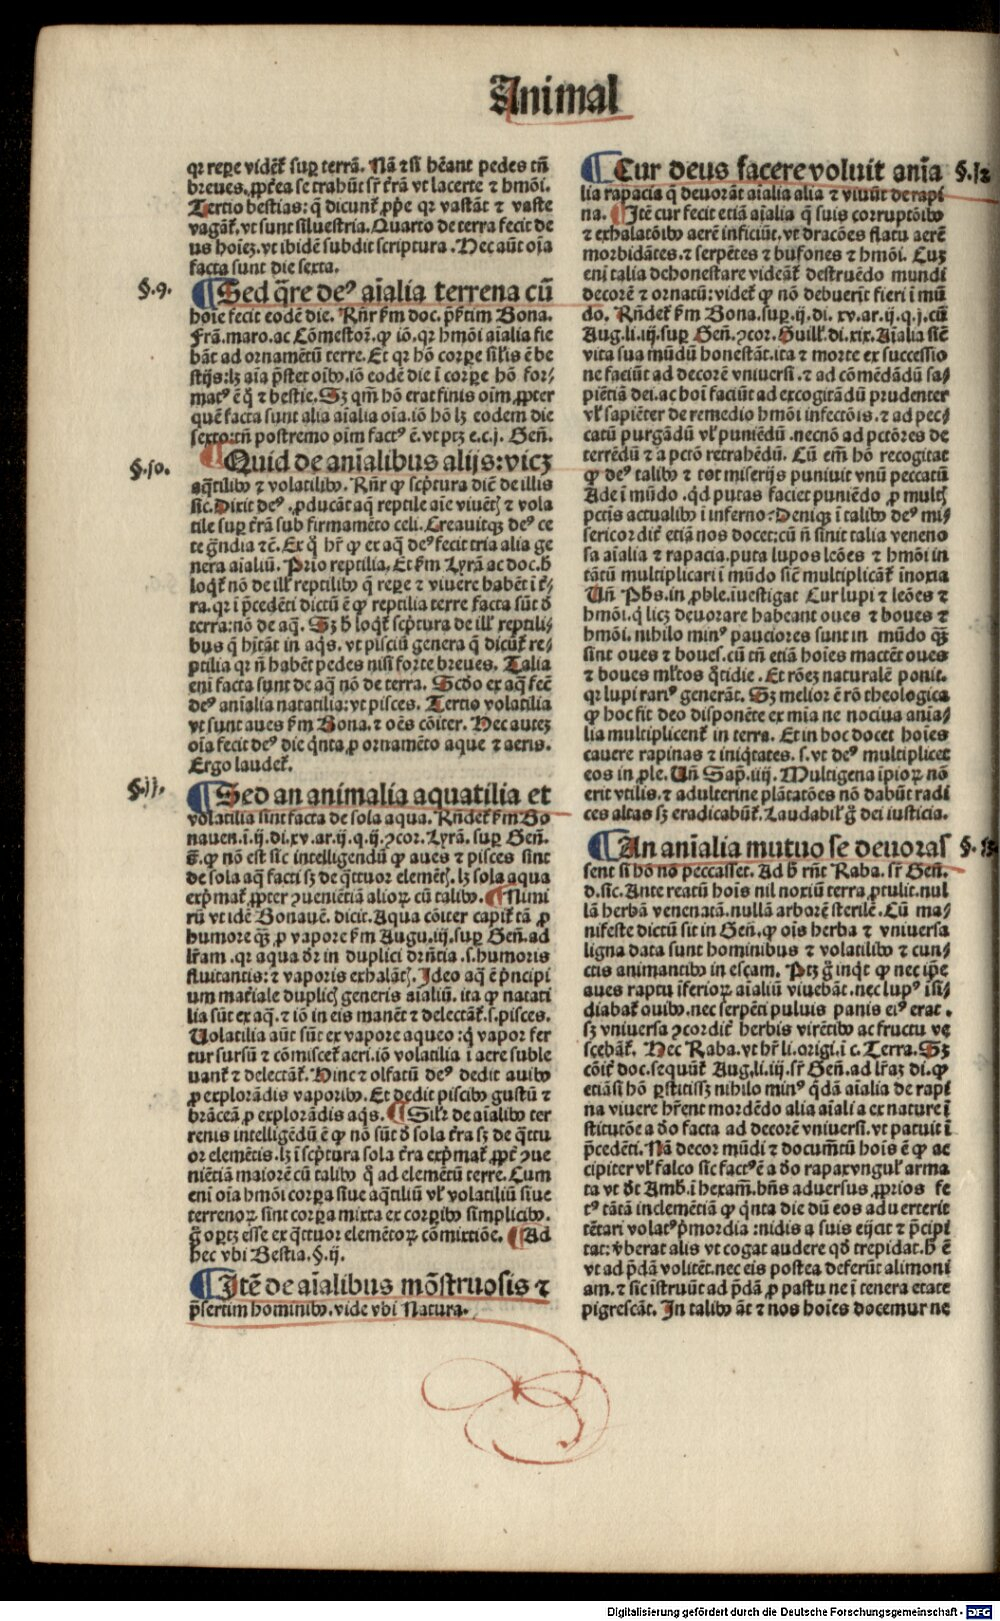 Animal
qꝛ repe videt᷑ suꝑ terrã. Nã ⁊ si hẽant pedes tñ
breues. ꝓpt̃ea se trahũt sr̃ t̃rã vt lacerte ⁊ hmõi.
Tertio bestias: q̃ dicunt᷑ ꝓp̃e qꝛ vastãt ⁊ vaste
vagãt᷑. vt sunt siluestria. Quarto de terra fecit de
us hoiẽꝫ. vt ibidẽ subdit scriptura. Nec aũt oĩa
facta sunt die sexta.
§.9.
Sed q̃re deꝰ aĩalia terrena cũ
hoĩe fecit eodẽ die. Rñr ẜm doc. p̃ẜtim Bona.
Frã. maro. ac Cõmestoꝝ. ꝙ iõ. qꝛ hmõi aĩalia fie
bãt ad ornamẽtũ terre. Et qꝛ hõ corꝑe sil̃is ẽ be
stijs: lꝫ aĩa p̃stet oĩbꝰ. iõ eodẽ die ĩ corꝑe hõ for⸗
matꝰ ẽ q̃ ⁊ bestie. Sꝫ qm̃ hõ erat finis oĩm. ꝓpter
quẽ facta sunt alia aĩalia oĩa. iõ hõ lꝫ eodem die
sexto: tñ postremo oĩm factꝰ ẽ. vt ptꝫ e. c. j. Geñ.
§.10.
Quid de anĩalibus alijs: vicꝫ
aq̃tilibꝰ ⁊ volatilibꝰ. Rñr ꝙ scp̃tura diẽ de illis
sic. Dixit deꝰ. ꝓducãt aq̃ reptile aĩe viuẽtꝭ ⁊ vola
tile suꝑ t̃rã sub firmamẽto celi. Creauitqꝫ deꝰ ce
te g̃ndia ⁊c̃. Ex q̃ hr̃ ꝙ ex aq̃ deꝰ fecit tria alia ge
nera aĩaliũ. Prio reptilia. Et ẜm Lyrã ac doc. h̃
loqt᷑ nõ de illꝭ reptilibꝰ q̃ repe ⁊ viuere habẽt ĩ t̃⸗
ra. qꝛ ĩ p̃cedẽti dictũ ẽ ꝙ reptilia terre facta sũt d̃
terra: nõ de aq̃. Sꝫ h̃ loqt᷑ scp̃tura de illꝭ reptili⸗
bus q̃ hĩtãt in aq̃s. vt pisciũ genera q̃ dicũt᷑ re⸗
ptilia qꝛ ñ habẽt pedes nisi forte breues. Talia
enĩ facta sunt de aq̃ nõ de terra. Scd̃o ex aq̃ fec̃
deꝰ anĩalia natatilia: vt pisces. Tertio volatilia
vt sunt aues ẜm Bona. ⁊ oẽs cõiter. Nec auteꝫ
oĩa fecit deꝰ die q̃nta. ꝓ ornamẽto aque ⁊ aeris.
Ergo laudet᷑.
§.11.
Sed an animalia aquatilia et
volatilia sint facta de sola aqua. Rñdet᷑ ẜm Bo
nauen. ĩ. ij. di. xv. ar. ij. q. ij. ⁊cor. Lyrã. suꝑ Geñ.
ꝙ nõ est sic intelligendũ ꝙ aues ⁊ pisces sint
de sola aq̃ facti sꝫ de q̃ttuor elemẽtꝭ. lꝫ sola aqua
exp̃mat᷑. ꝓpter ꝯueniẽtiã alioꝝ cũ talibꝰ. Nimi
rũ vt idẽ Bonauẽ. dicit. Aqua cõiter capit᷑ tã ꝓ
humore qꝫ ꝓ vapore ẜm Augu. iij. suꝑ Geñ. ad
lr̃am. qꝛ aqua d̃r in duplici dr̃ñtia. s. humoris
fluitantis: ⁊ vaporis exhalãtꝭ. Ideo aq̃ ẽ p̃ncipi
um mat̃iale duplicꝭ generis aĩaliũ. ita ꝙ natati
lia sũt ex aq̃. ⁊ iõ in eis manẽt ⁊ delectãt᷑. s. pisces.
Uolatilia aũt sũt ex vapore aqueo: q̃ vapor fer
tur sursũ ⁊ cõmiscet᷑ aeri. iõ volatilia ĩ aere suble
uant᷑ ⁊ delectãt᷑. Hinc ⁊ olfatũ deꝰ dedit auibꝰ
ꝓ explorãdis vaporibꝰ. Et dedit piscibꝰ gustũ ⁊
brãceã ꝓ explorãdis aq̃s. Sil̃r de aĩalibꝰ ter
renis intelligẽdũ ẽ ꝙ nõ sũt d̃ sola t̃ra sꝫ de q̃ttu
or elemẽtis. lꝫ ĩ scp̃tura sola t̃ra exp̃mat᷑. ꝓpt̃ ꝯue
niẽtiã maiorẽ cũ talibꝰ q̃ ad elemẽtũ terre. Cum
enĩ oĩa hmõi corꝑa siue aq̃tiliũ vl̃ volatiliũ siue
terrenoꝝ sint corꝑa mixta ex corꝑibꝰ simplicibꝰ.
g̃ oꝑtꝫ esse ex q̃ttuor elemẽtoꝝ cõmixtiõe. Ad
hec vbi Bestia. §. ij.
Itẽ de aĩalibus mõstruosis ⁊
p̃sertim hominibꝰ. vide vbi Natura.
Cur deus facere voluit anĩa
§.12
lia rapacia q̃ deuorãt aĩalia alia ⁊ viuũt de rapi
na. Itẽ cur fecit etiã aĩalia q̃ suis corruptõibꝰ
⁊ exhalatõibꝰ aerẽ inficiũt. vt dracões flatu aerẽ
morbidãtes. ⁊ serpẽtes ⁊ bufones ⁊ hmõi. Cuꝫ
enĩ talia dehonestare videãt᷑ destruẽdo mundi
decorẽ ⁊ ornatũ: videt᷑ ꝙ nõ debuerĩt fieri ĩ mũ
do. Rñdet᷑ ẜm Bona. suꝑ. ij. di. xv. ar. ij. q. j. cũ
Aug. li. iij. suꝑ Geñ. ⁊cor. Guill̃. di. xix. Aĩalia sic̃
vita sua mũdũ honestãt. ita ⁊ morte ex successio
ne faciũt ad decorẽ vniuersi. ⁊ ad cõmẽdãdũ sa⸗
piẽtiã dei. ac hoĩ faciũt ad excogitãdũ prudenter
vl̃ sapiẽter de remedio hmõi infectõis. ⁊ ad pec⸗
catũ purgãdũ vl̃ puniẽdũ. necnõ ad pctõres de
terrẽdũ ⁊ a pctõ retrahẽdũ. Cũ em̃ hõ recogitat
ꝙ deꝰ talibꝰ ⁊ tot miserijs puniuit vnũ peccatũ
Ade ĩ mũdo. qd̃ putas faciet puniẽdo ꝓ multꝭ
pctĩs actualibꝰ ĩ inferno? Deniqꝫ ĩ talibꝰ deꝰ mi⸗
sericordit̃ etiã nos docet: cũ ñ sinit talia veneno
sa aĩalia ⁊ rapacia. puta lupos leões ⁊ hmõi in
tãtũ multiplicari ĩ mũdo sic̃ multiplicãt᷑ ĩnoxia
Uñ Phs. in ꝓble. ĩuestigat Cur lupi ⁊ leões ⁊
hmõi. q̃ licꝫ deuorare habeant oues ⁊ boues ⁊
hmõi. nihilo minꝰ pauciores sunt in mũdo qꝫ
sint oues ⁊ boues. cũ tñ etiã hoĩes mactẽt oues
⁊ boues ml̃tos q̃tidie. Et rõeꝫ naturalẽ ponit.
qꝛ lupi rariꝰ generãt. Sꝫ melior ẽ rõ theologica
ꝙ hoc fit deo disponẽte ex mĩa ne nociua anĩa⸗
lia multiplicent᷑ in terra. Et in hoc docet hoĩes
cauere rapinas ⁊ iniq̃tates. s. vt deꝰ multiplicet
eos in ꝓle. Uñ Sap̃. iiij. Multigena ĩpioꝝ nõ
erit vtilis. ⁊ adulterine plãtatões nõ dabũt radi
ces altas sꝫ eradicabũt᷑. Laudabil̃ g̃ dei iusticia.
An anĩalia mutuo se deuoras
§.13
sent si hõ nõ peccasset. Ad h̃ rñt Raba. sr̃ Geñ.
d. sic. Ante reatũ hoĩs nil noxiũ terra ꝓtulit. nul
lã herbã venenatã. nullã arborẽ sterilẽ. Cũ ma⸗
nifeste dictũ sit in Geñ. ꝙ oĩs herba ⁊ vniuersa
ligna data sunt hominibus ⁊ volatilibꝰ ⁊ cun⸗
ctis animantibꝰ in escam. Ptꝫ g̃ inqt̃ ꝙ nec ip̃e
aues raptu ĩferioꝝ aĩaliũ viuebãt. nec lupꝰ ĩsi⸗
diabat᷑ ouibꝰ. nec serpẽti puluis panis eiꝰ erat.
sꝫ vniuersa ꝯcordit̃ herbis virẽtibꝰ ac fructu ve
scebãt᷑. Nec Raba. vt hr̃ li. origi. ĩ c. Terra. Sꝫ
cõit̃ doc. sequũt᷑ Aug. li. iij. sr̃ Geñ. ad lr̃aꝫ di. ꝙ
etiãsi hõ ꝑstitissꝫ nihilo minꝰ q̃dã aĩalia de rapi
na viuere hr̃ent mordẽdo alia aĩalia ex nature ĩ
stitutõe a d̃o facta ad decorẽ vniuersi. vt patuit ĩ
p̃cedẽti. Nã decor mũdi ⁊ documẽtũ hoĩs ẽ ꝙ ac
cipiter vl̃ falco sic factꝰ ẽ a d̃o rapax vngul̃ arma
ta vt d̃t Amb. ĩ hexam̃. hñs aduersus ꝓprios fe
tꝰ tãtã inclemẽtiã ꝙ q̃nta die dũ eos aduerterit
tẽtari volatꝰ p̃mordia: nidis a suis eijcit ⁊ p̃cipi
tat: v̾berat alis vt cogat audere qd̃ trepidat. h̃ ẽ
vt ad p̃dã volitẽt. nec eis postea deferũt alimoni
am. ⁊ sic ĩstruũt ad p̃dã ꝓ pastu ne ĩ tenera etate
pigrescãt. In talibꝰ ãt ⁊ nos hoĩes docemur ne
Digitalisierung gefördert durch die Deutsche Forschungsgemeinschaft - DFG